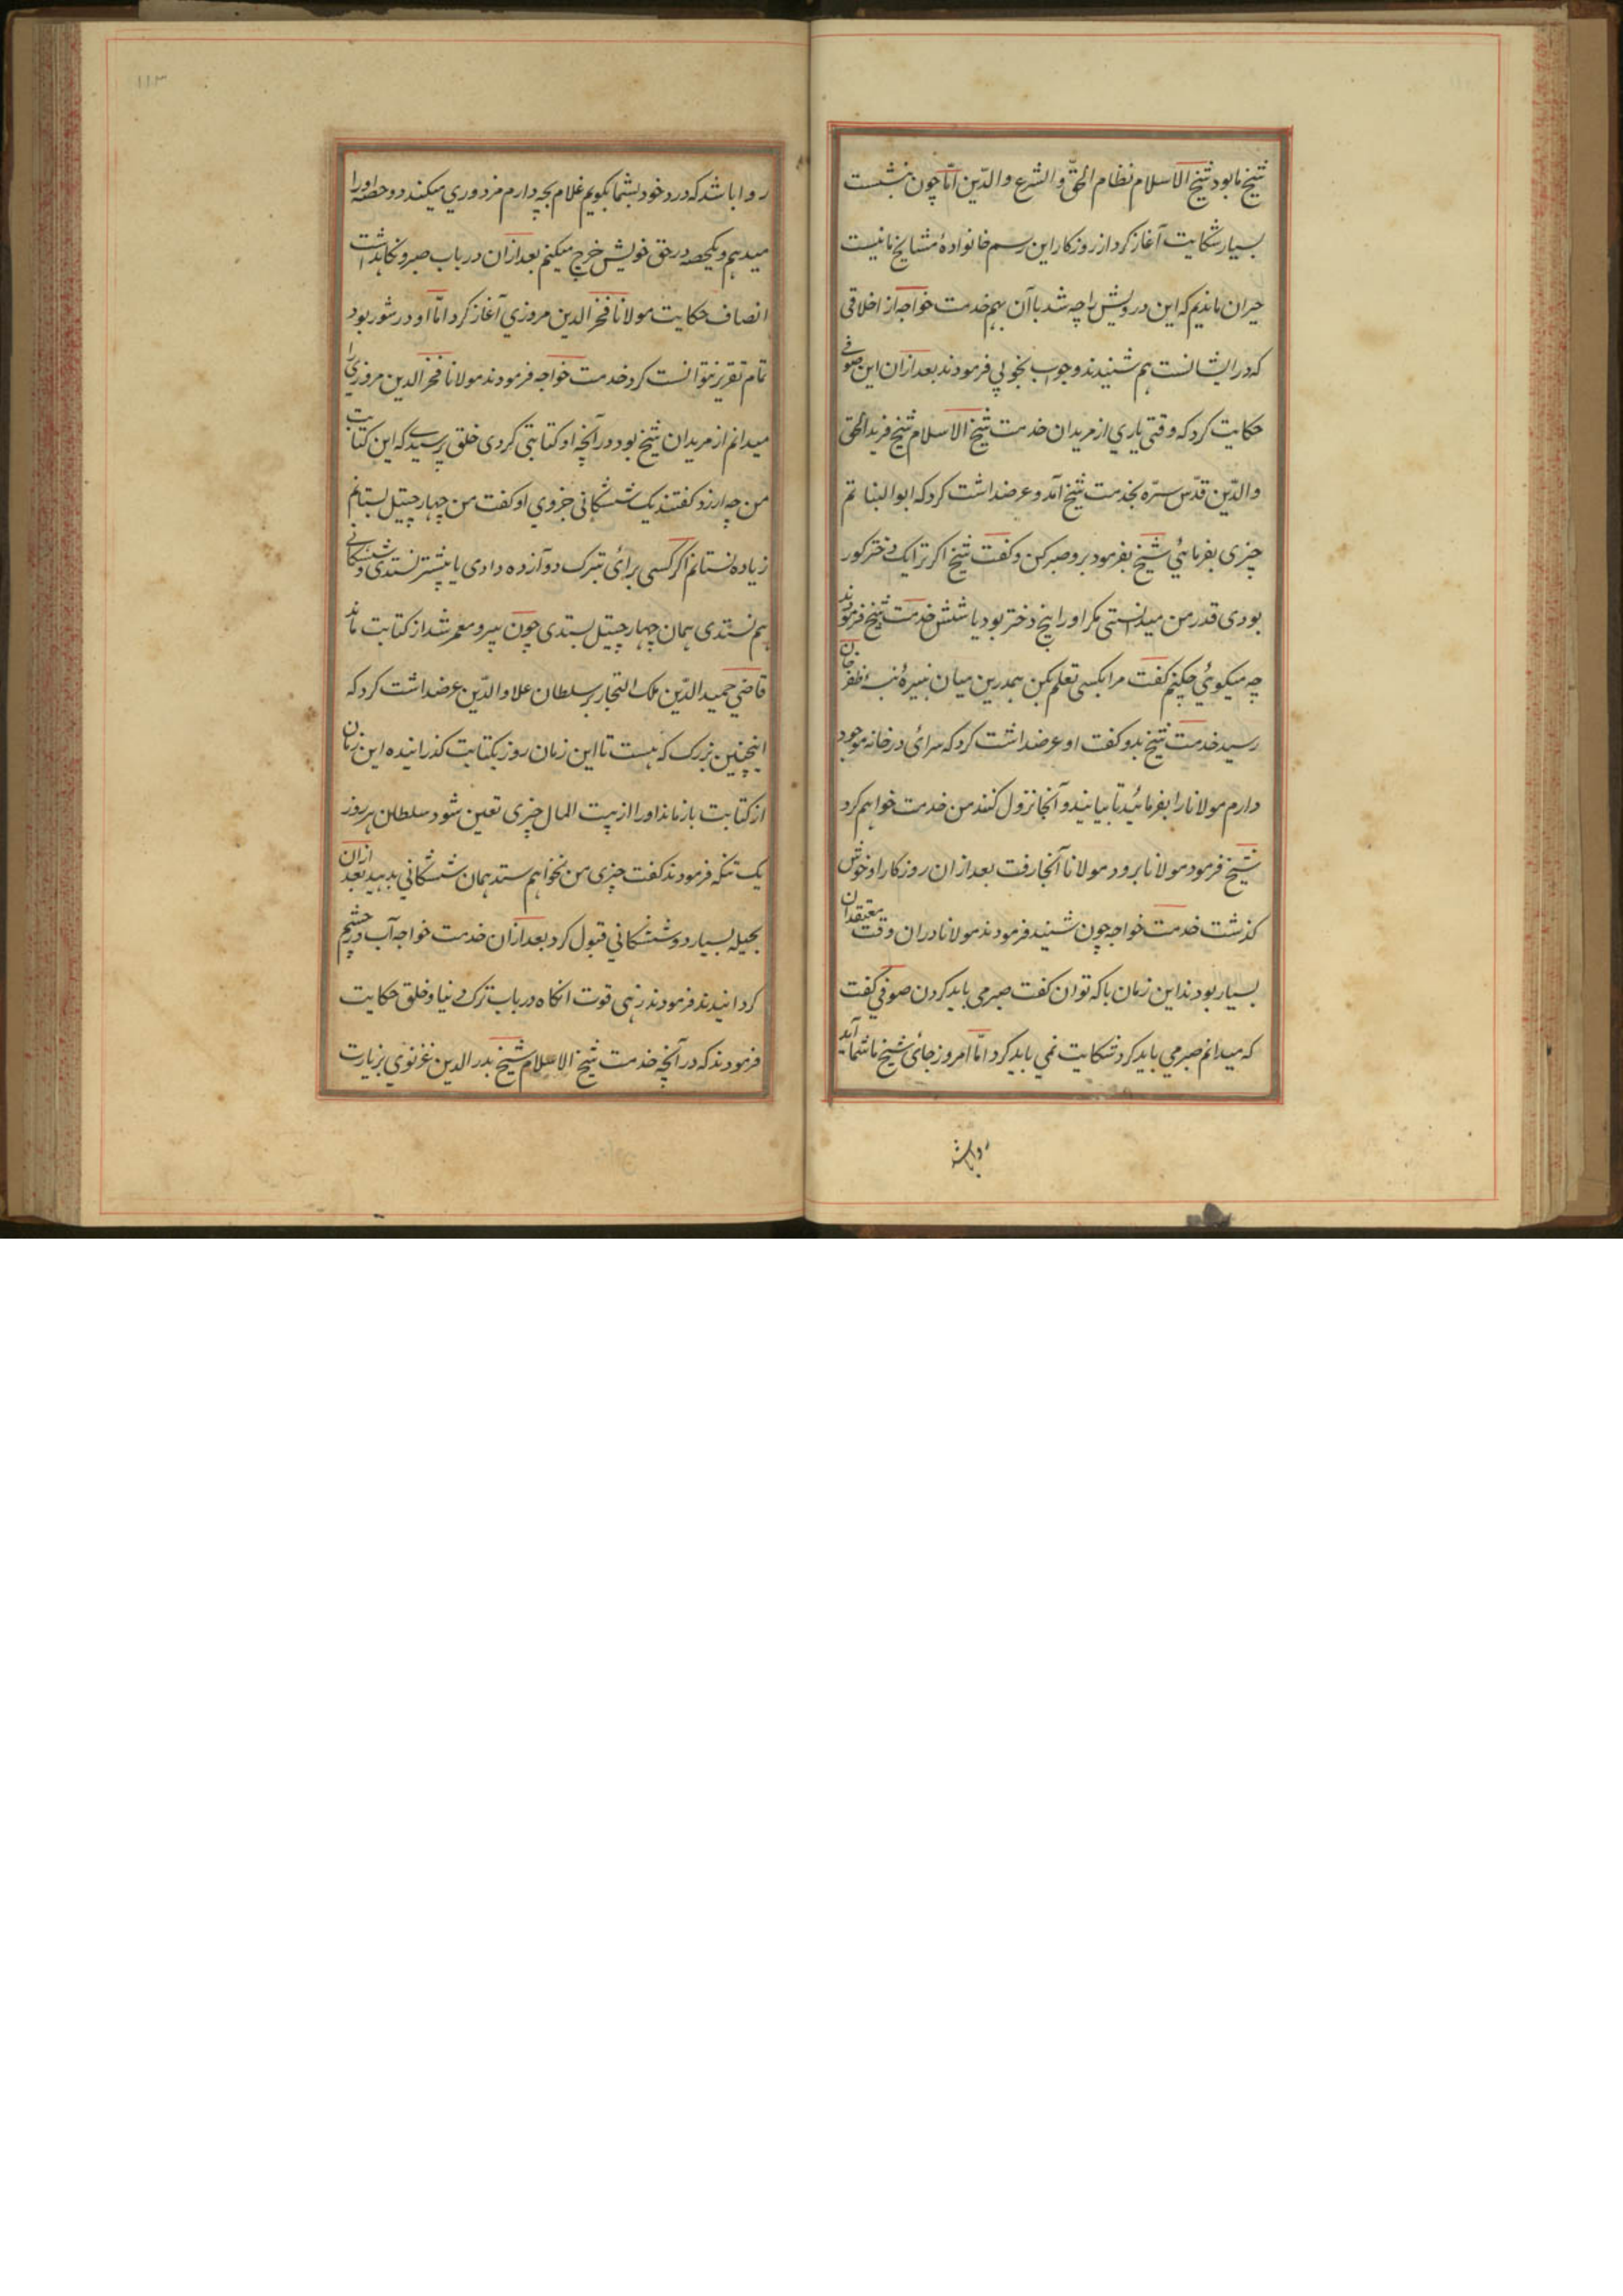 شیخ ما بود شیخ الاسلام نظام الحقّ و الشرع والدّین امّا چون بنشست
بسیار شکایت آغاز کرد از روزکار این رسم خانوادهٔ مشایخ ما نیست
حیران ماندیم که این درویش را چه شد با آن هم خدمت خواجه از اخلاقی
که در ایشانست هم شنیدند و جواب بخوبی فرمودند بعد ازان این صوفی
حکایت کرد که وقتی یاری از مریدان خدمت شیخ الاسلام شیخ فرید الحق
والدّین قدّس سرّه بخدمت شیخ آمد و عرضداشت کرد که ابو البناتم
چیزی بفرمائی شیخ بفرمود برو صبر کن و کفت شیخ اکر ترا یک دختر کور
بودی قدر من میدانستی مکر او را پنج دختر بود یا شش خدمت شیخ فرمودند
چه میکوئی چکنم کفت مرا بکسی تعلم بکن همدرین میان نبیرهٔ نبسه ظفر خان
رسید خدمت شیخ بدو کفت او عرضداشت کرد که سرای در خانه موجود
دارم مولانا را بفرمائید تا بیایند و آنجا نزول کنند من خدمت خواهم کرد
شیخ فرمود مولانا برود مولانا آنجا رفت بعد ازان روزکار او خوش
کذشت خدمت خواجه چون شنید فرمودند مولانا دران وقت معتقدان
بسیار بودند این زمان باکه توان کفت صبر می باید کردن صوفی کفت
که میدانم صبر می باید کرد شکایت نمی باید کرد امّا امروز جای شیخ ما شمااید
روا باشد
۱۱۳
روا باشد که درد خود بشما بکویم غلام بچه دارم مزدوری میکند دو حصه او را
میدهم و یکحصه در حق خویش خرج میکنم بعد ازان در باب صبر و نکاهداشت
انصاف حکایت مولانا فخر الدین مروزی آغاز کرد امّا او در شور بود
تمام تقریر نتوانست کرد خدمت خواجه فرمودند مولانا فخر الدین مروزی را
میدانم از مریدان شیخ بود در آنچه او کتابتی کردی خلق پرسیدی که این کتابت
من چه ارزد کفتند یک ششکانی جزوی او کفت من چهار چیتیل بستانم
زیاده نستانم اکر کسی برای تبرک دوآزده دادی یا بیشتر نستدی و ششکانی
هم نستدی همان چهار چیتیل بستدی چون پیر و معمر شد از کتابت ماند
قاضی حمید الدّین ملک التجار بر سلطان علاو الدّین عرضداشت کرد که
اینچنین بزرک که هست تا این زمان روز بکتابت کذرانیده این زمان
از کتابت بازماند او را از بیت المال چیزی تعین شود سلطان هر روز
یک تنکه فرمودند کفت چیزی من نخواهم ستد همان ششکانی بدهید بعد ازان
بحیله بسیار دو ششکانی قبول کرد بعد ازان خدمت خواجه آب در چشم
کردانیدند فرمودند زهی قوت انکاه در باب ترک دنیا و خلق حکایت
فرمودند که در آنچه خدمت شیخ الاسلام شیخ بدر الدین غزنوی بزیارت